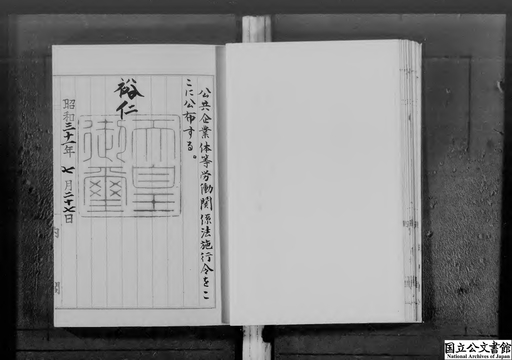 公共企業体等労働関係法施行令をこ
こに公布する。
裕仁
天皇
御璽
昭和三十一年七月二十七日
内閣
国立公文書館
National Archives of Japan